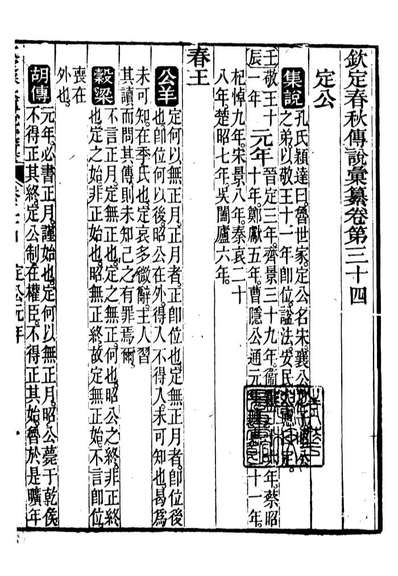 欽定春秋傳說彙纂卷第三十四
定公
集說 孔氏穎達曰魯世家定公名宋襄公
之弟以敬王十一年即位諡法安民
壬辰 敬王十一年 元年 晉定三年齊景三十九年衛 年蔡昭
十年鄭獻五年曹隱公通元 十一年
杞悼九年宋景八年秦哀二十
八年楚昭七年吳闔廬六年
春王
公羊 定何以無正月正月者正即位也定無正月者即位後
也即位何以後昭公在外得入不得入未可知也曷爲
未可知在季氏也定哀多微辭主人習
其讀而問其傳則未知己之有罪焉爾
穀梁 不言正月定無正也定之無正何也昭公之終非正終
也定之始非正始也昭無正終故定無正始不言即位
喪在
外也
胡傳 元年必書正月謹始也定何以無正月昭公薨于乾侯
不得正其終定公制在權臣不得正其始魯於是曠年
定公元年